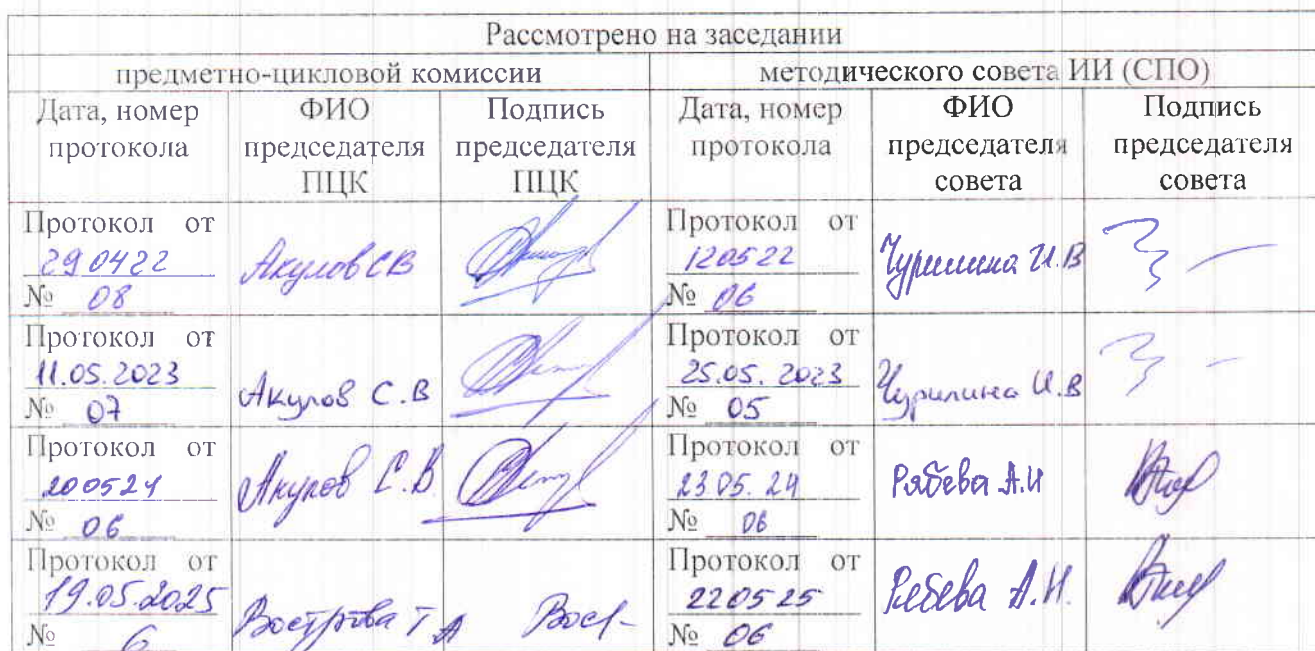 Рассмотрено на заседании
предметно-цикловой комиссии
методического совета ИИ (СПО)
Дата, номер протокола
ФИО председателя ПЦК
Подпись председателя ПЦК
Дата, номер протокола
ФИО председателя совета
Подпись председателя совета
Протокол от
290422
№ 08
Акулов СВ
Протокол от
120522
№ 06
Чурилина И.В
Протокол от
11.05.2023
№ 07
Акулов С.В
Протокол от
25.05.2023
№ 05
Чурилина И.В
Протокол от
200524
№ 06
Акулов С.В.
Протокол от
23.05.24
№ 06
Рябева А.И
Протокол от
19.05.2025
№ 6
Вострова Т А
Протокол от
220525
№ 06
Рябева А.И.